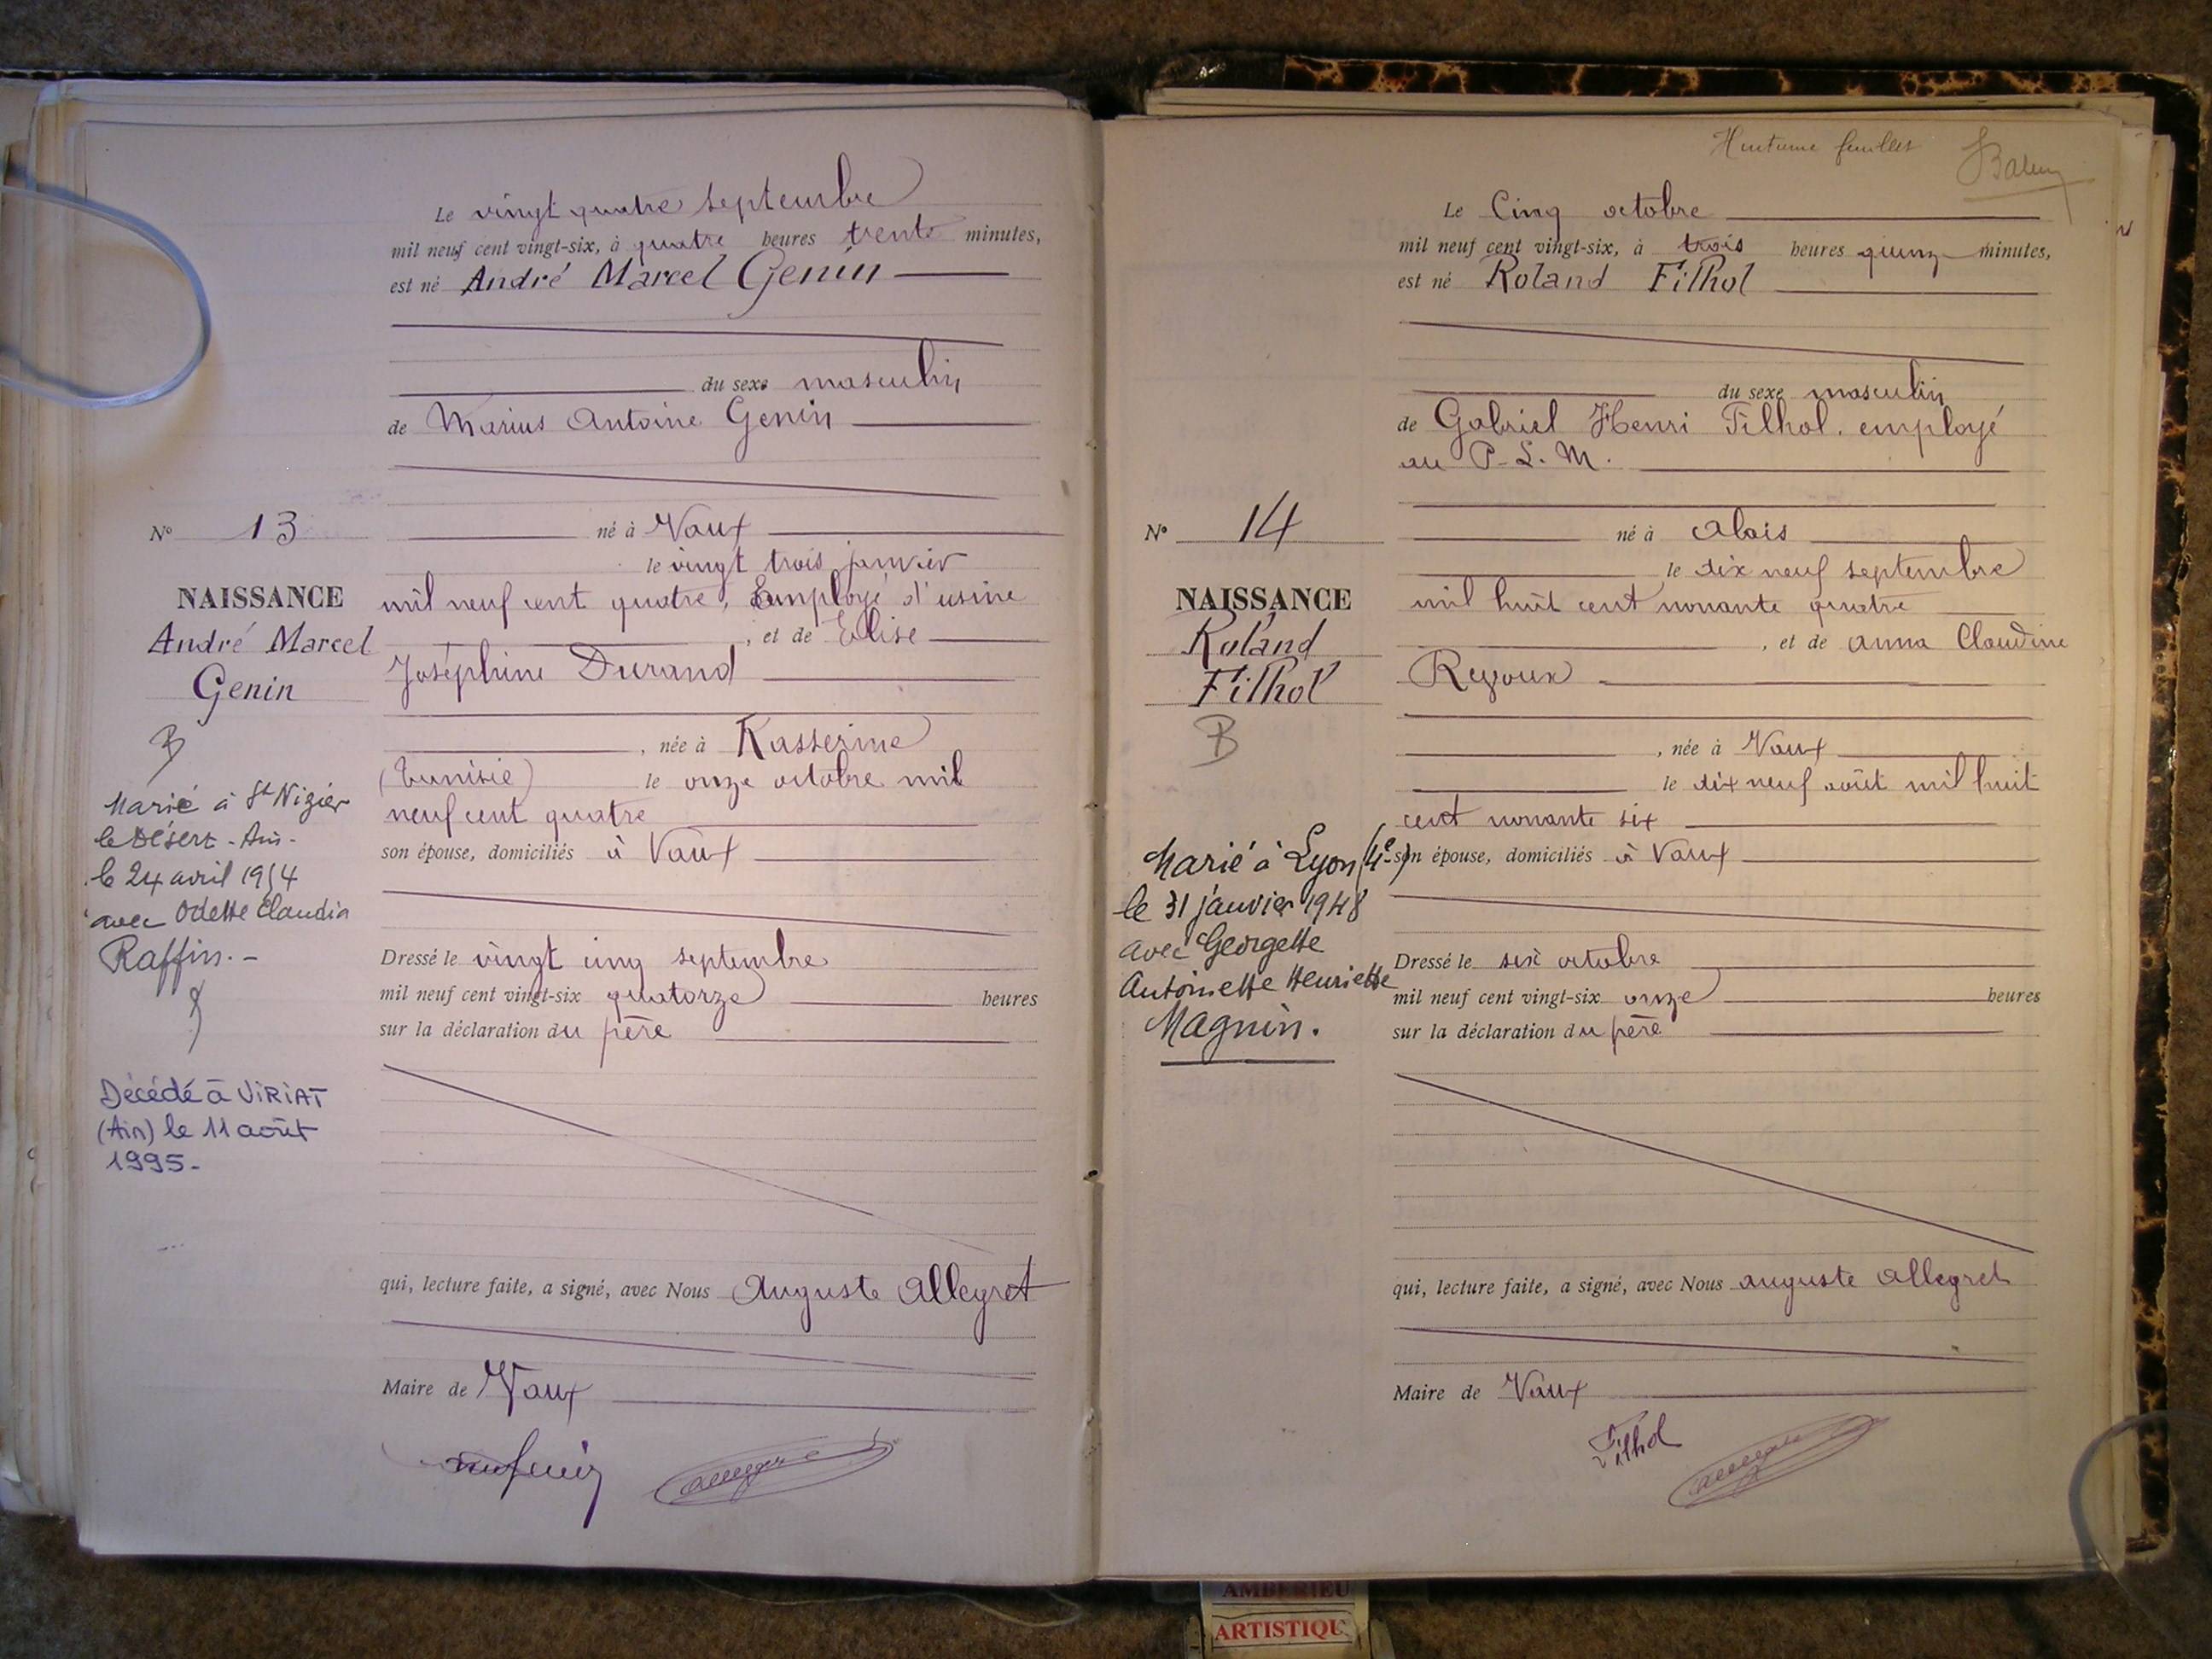 Le vingt quatre septembre
mil neuf cent vingt-six, à quatre heures trente minutes,
est né André Marcel Genin
du sexe masculin
de Marius Antoine Genin
N° 13
né à Vaux
le vingt trois janvier
mil neuf cent quatre, Employé d'usine
NAISSANCE
André Marcel
Genin
, et de Elise
Joséphine Durand
, née à Kasserine
(Tunisie) le onze octobre mil
neuf cent quatre
son épouse, domiciliés à Vaux
B
Marié à St Nizier
le Désert - Ain -
le 24 avril 1954
avec Odette Claudia
Raffin. -
Dressé le vingt cinq septembre
mil neuf cent vingt-six quatorze heures
sur la déclaration du père
Décédé à VIRIAT
(Ain) le 11 août
1995 -
qui, lecture faite, a signé, avec Nous Auguste Allegret
Maire de Vaux
feuillet
Le Cinq octobre
mil neuf cent vingt-six, à trois heures quinz minutes,
est né Roland Filhol
du sexe masculin
de Gabriel Henri Filhol, employé
au P-L. M.
N° 14
né à Alais
le dix neuf septembre
mil huit cent nonante quatre
NAISSANCE
Roland
Filhol
, et de Anna Claudine
Reyoux
, née à Vaux
le dix neuf août mil huit
cent nonante six
son épouse, domiciliés à Vaux
B
Marié à Lyon (4e)
le 31 janvier 1948
avec Georgette
Antoinette Henriette
Magnin.
Dressé le six octobre
mil neuf cent vingt-six onze heures
sur la déclaration du père
qui, lecture faite, a signé, avec Nous Auguste Allegret
Maire de Vaux
Filhol
AMBERIEU
ARTISTIQU